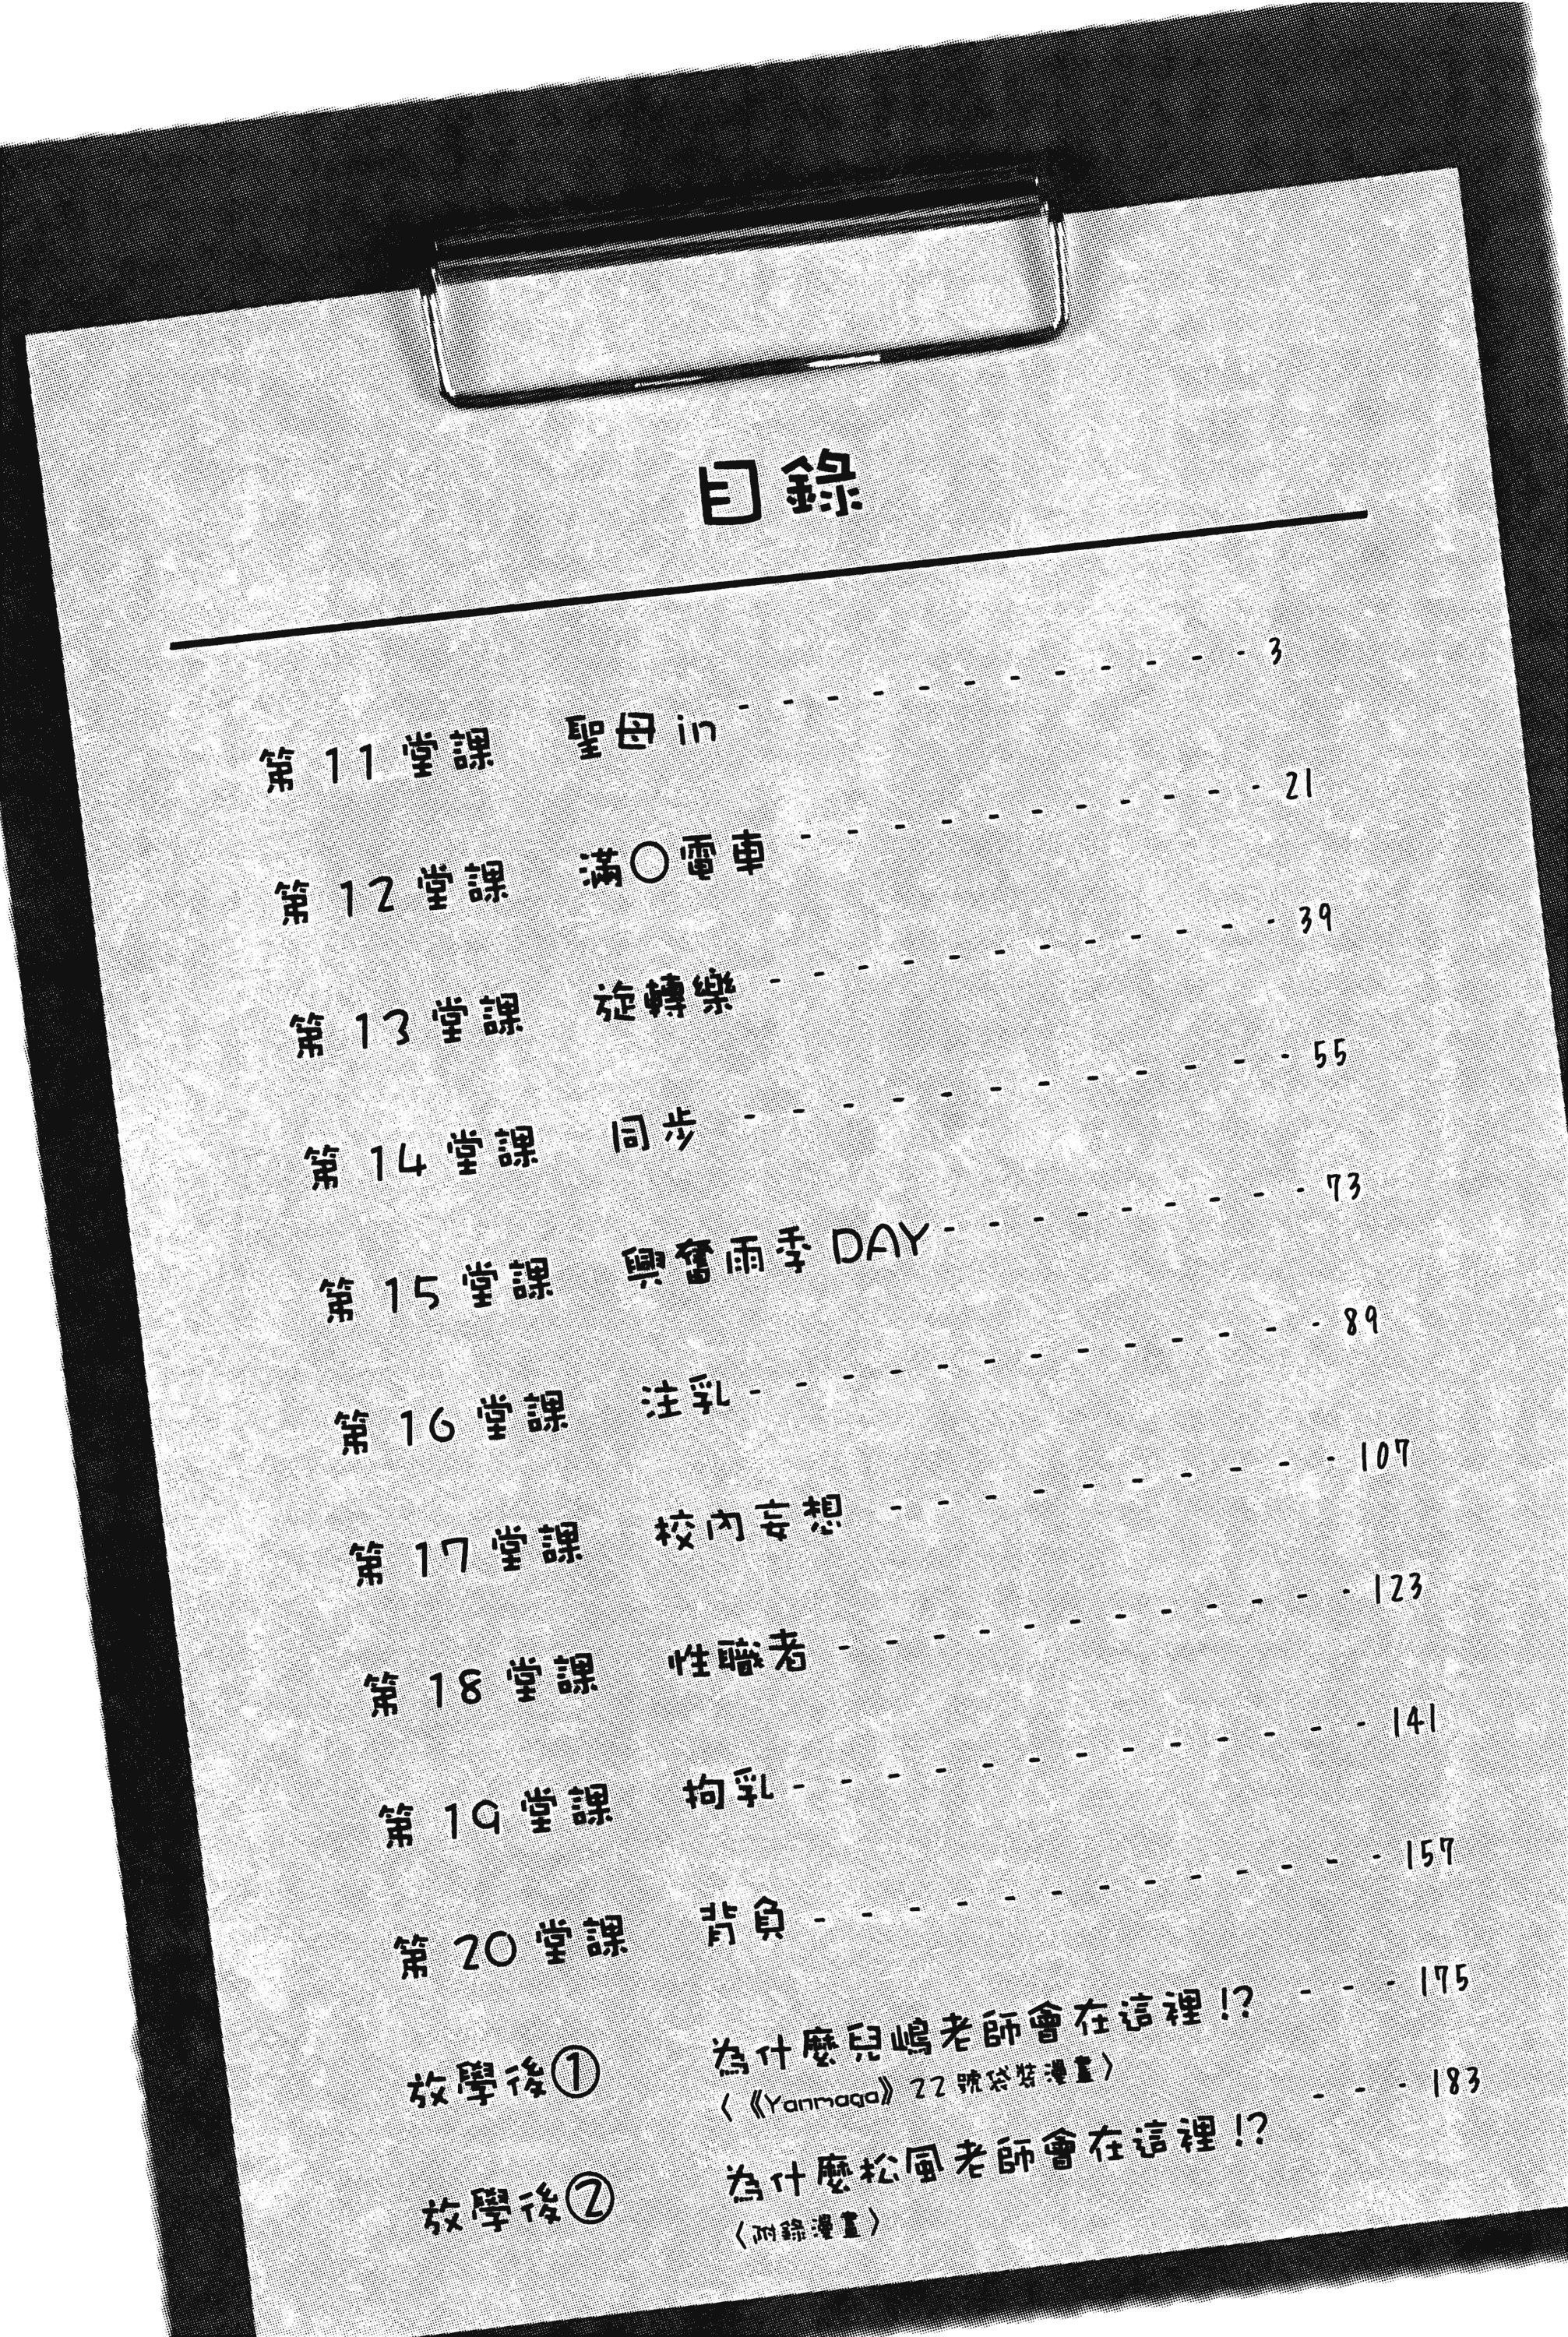 目錄
第11堂課 聖母in - - - - - - - - - - - - 3
第12堂課 滿〇電車 - - - - - - - - - - - 21
第13堂課 旋轉樂 - - - - - - - - - - - - 39
第14堂課 同步 - - - - - - - - - - - - 55
第15堂課 興奮雨季DAY - - - - - - - - - 73
第16堂課 注乳 - - - - - - - - - - - - - 89
第17堂課 校內妄想 - - - - - - - - - - 107
第18堂課 性職者 - - - - - - - - - - - - 123
第19堂課 拘乳 - - - - - - - - - - - - - 141
第20堂課 背負 - - - - - - - - - - - - - 157
放學後① 為什麼兒嶋老師會在這裡!? - - - 175
〈《Yanmaga》22號袋裝漫畫〉
放學後② 為什麼松風老師會在這裡!? - - - 183
〈附錄漫畫〉